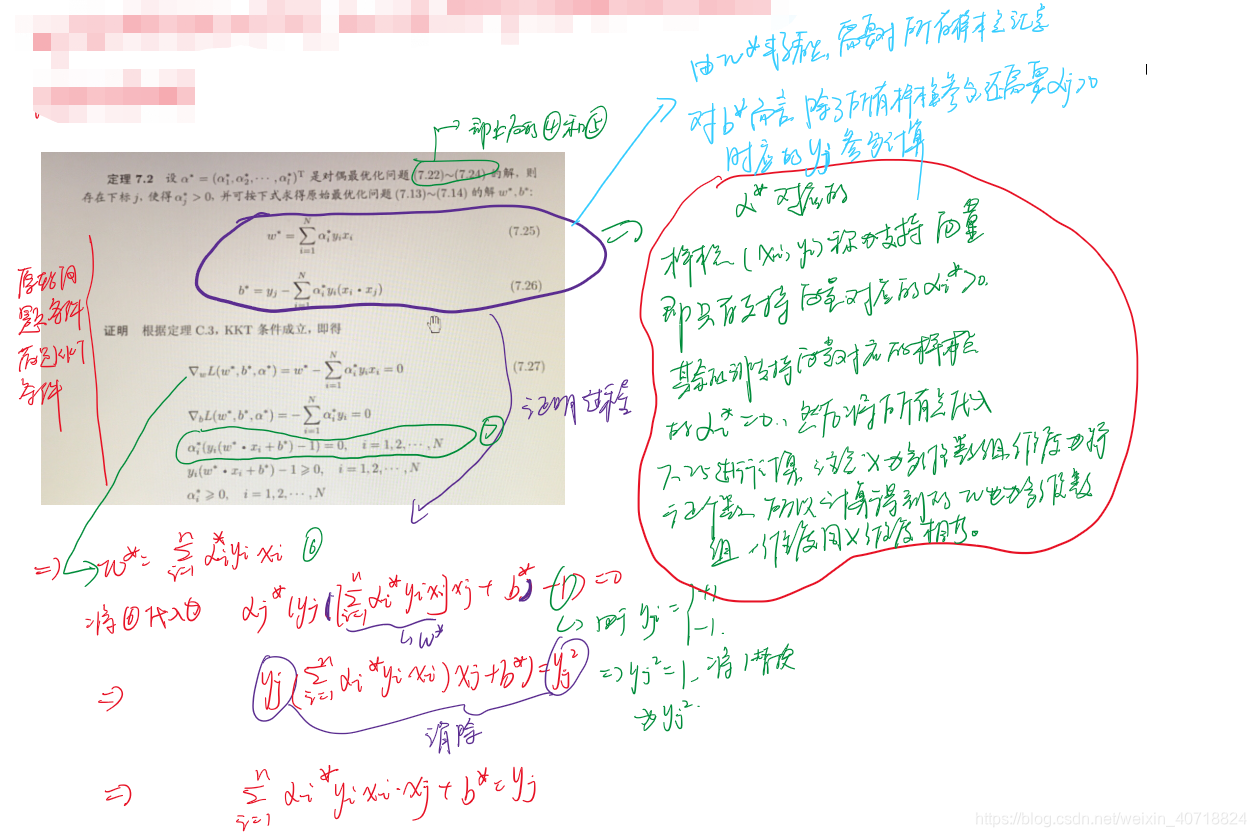 由w*求解看出,需要对所有样本点记录
对b*而言,除了所有样本参与还需要αj>0
对应的yj参与计算
即上方的④和⑤
定理 7.2 设 α* = (α₁*, α₂*, ···, α_l*)ᵀ 是对偶最优化问题 (7.22)~(7.24) 的解,则
存在下标 j,使得 αj* > 0,并可按下式求得原始最优化问题 (7.13)~(7.14) 的解 w*, b*:
w* = ∑_{i=1}^{N} αi* yi xi (7.25)
b* = yj − ∑_{i=1}^{N} αi* yi (xi · xj) (7.26)
证明 根据定理 C.3,KKT 条件成立,即得
∇w L(w*, b*, α*) = w* − ∑_{i=1}^{N} αi* yi xi = 0 (7.27)
∇b L(w*, b*, α*) = −∑_{i=1}^{N} αi* yi = 0
αi*(yi(w* · xi + b*) − 1) = 0, i = 1, 2, ···, N
yi(w* · xi + b*) − 1 ⩾ 0, i = 1, 2, ···, N
αi* ⩾ 0, i = 1, 2, ···, N
原始问
题条件
条件
证明过程
α*对应的
样本点 (xi, yi) 称为支持向量
即只有支持向量对应的αi*>0.
其余的非支持向量对应的样本点
的αi*=0, 然后将所有点代入
7.25进行计算,
个数,所以计算得到的w也为多维数
组,维度同X维度相等。
⇒ w* = ∑_{i=1}^{n} αi* yi xi ⑥
将⑥代入⑦ αj*(yj([∑_{i=1}^{n} αi* yi xi]xj + b*) −1)=0
w*
↳ 由于 yj = {+1
−1.
⇒ yj (∑_{i=1}^{n} αi* yi xi) xj + b*) = yj²
⇒ yj²=1. 将1替换
为yj².
消除
⇒ ∑_{i=1}^{n} αi* yi xi·xj + b* = yj
https://blog.csdn.net/weixin_40718824